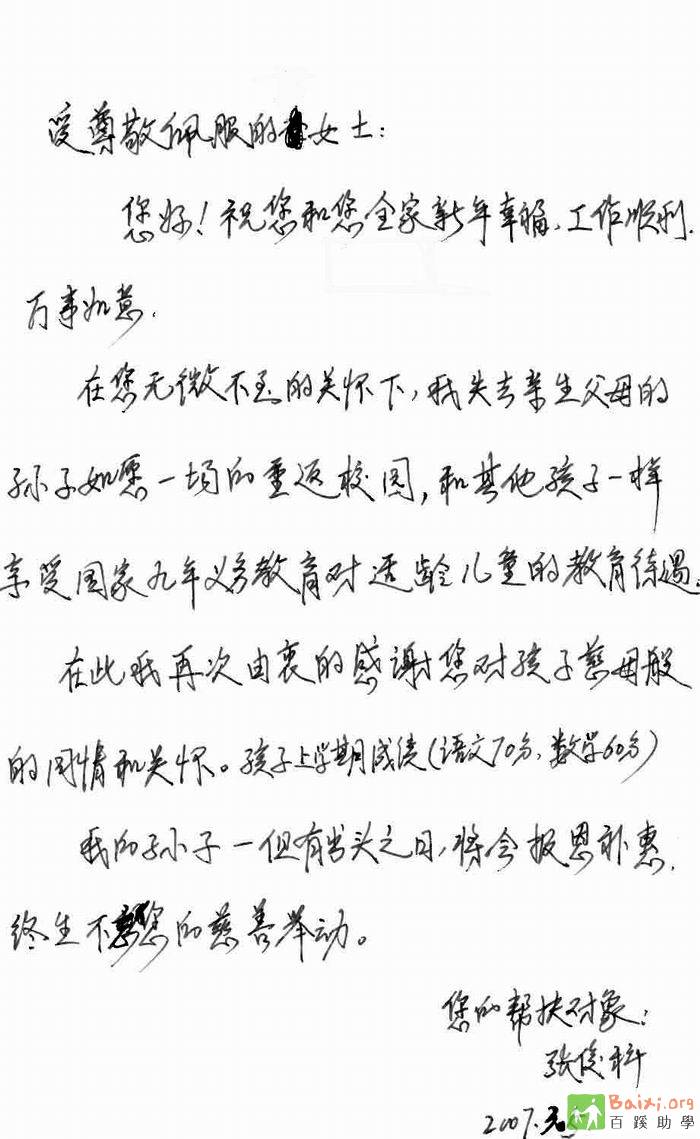 受尊敬佩服的女士:
您好!祝您和您全家新年幸福、工作顺利.
万事如意.
在您无微不至的关怀下,我失去亲生父母的
孙子如愿一场的重返校园,和其他孩子一样
享受国家九年义务教育对适龄儿童的教育待遇.
在此我再次由衷的感谢您对孩子慈母般
的同情和关怀。孩子上学期成绩(语文70分,数学60分)
我的孙子一但有出头之日,将会报恩补惠.
终生不忘您的慈善举动。
您的帮扶对象:
张俊科
2007.
Baixi.org
百蹊助學